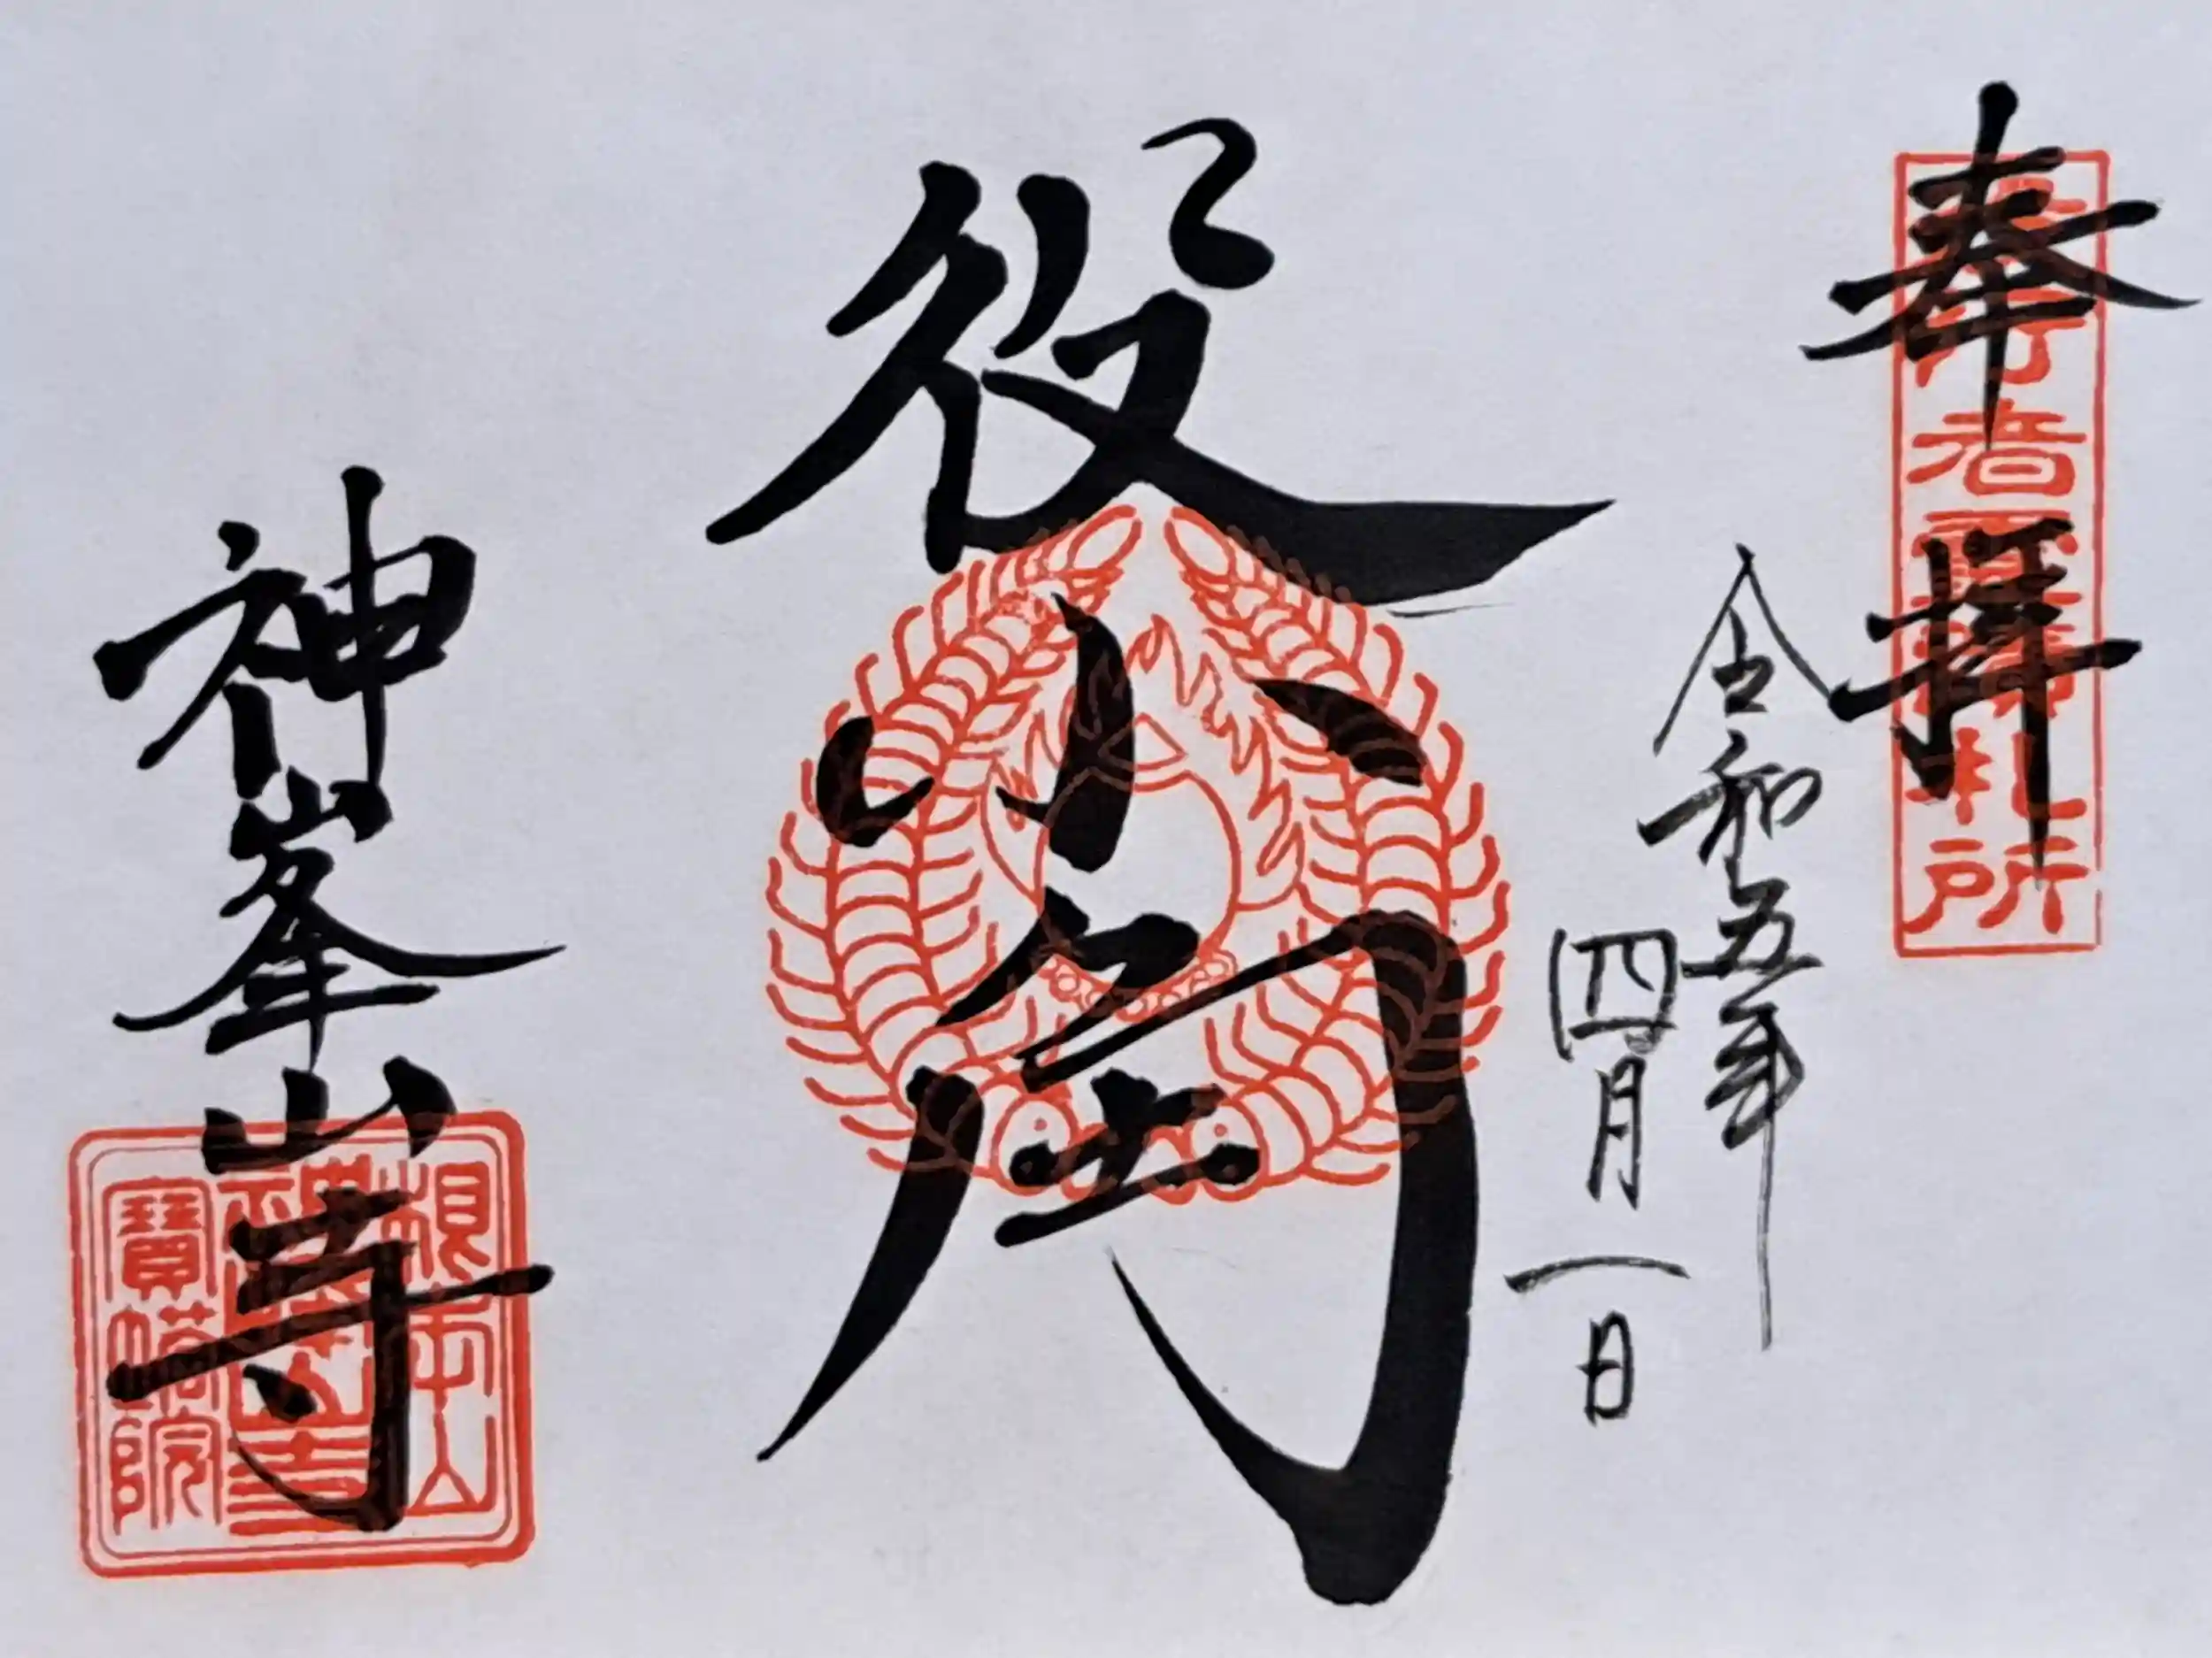 奉拝
令和五年
四月一日
役小角
神峯山寺
根本山
神峯山寺
寶塔院